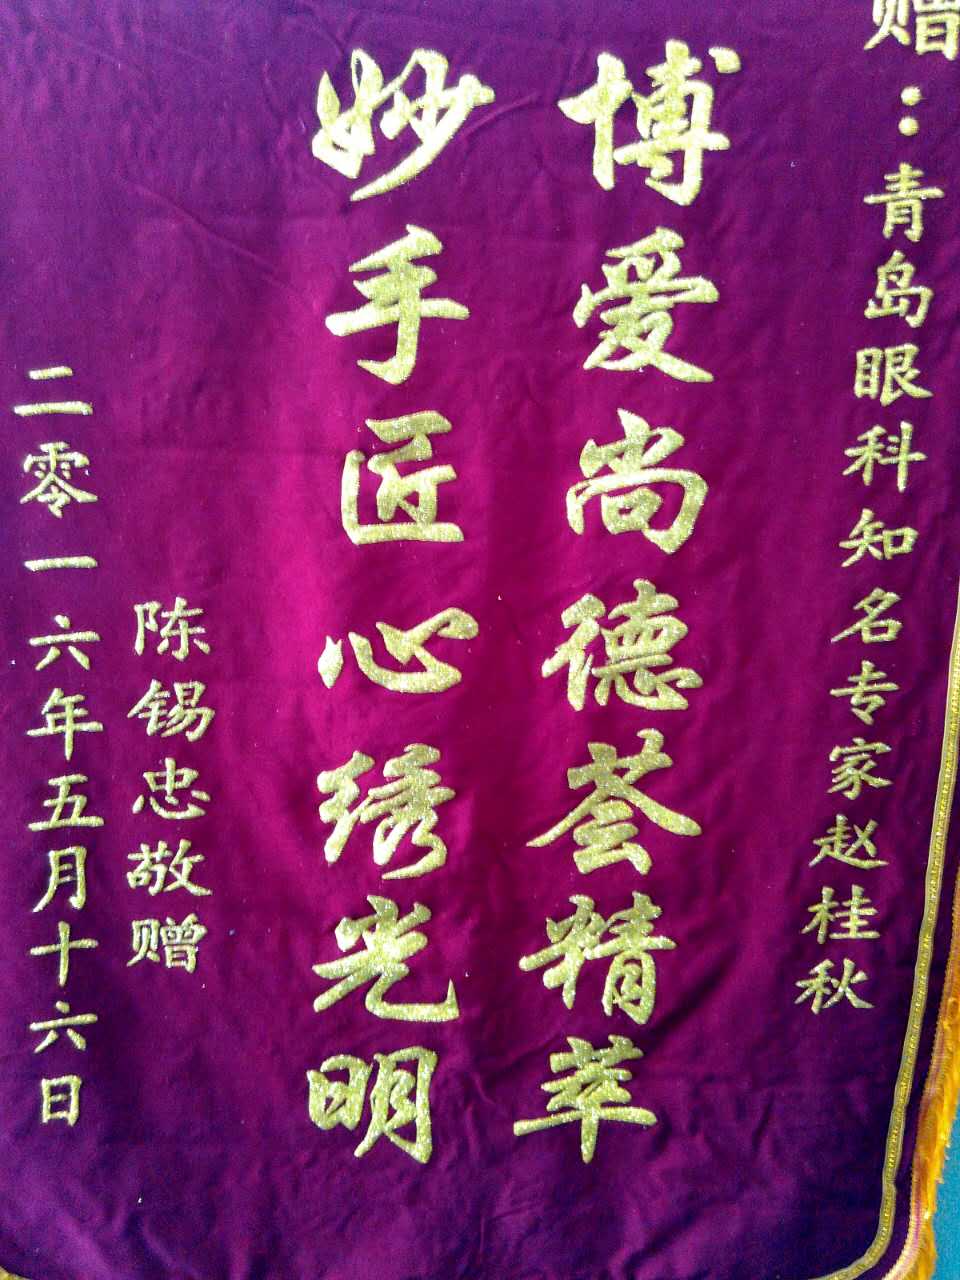 赠：青岛眼科知名专家赵桂秋
博爱尚德荟精萃
妙手匠心绣光明
陈锡忠敬赠
二零一六年五月十六日